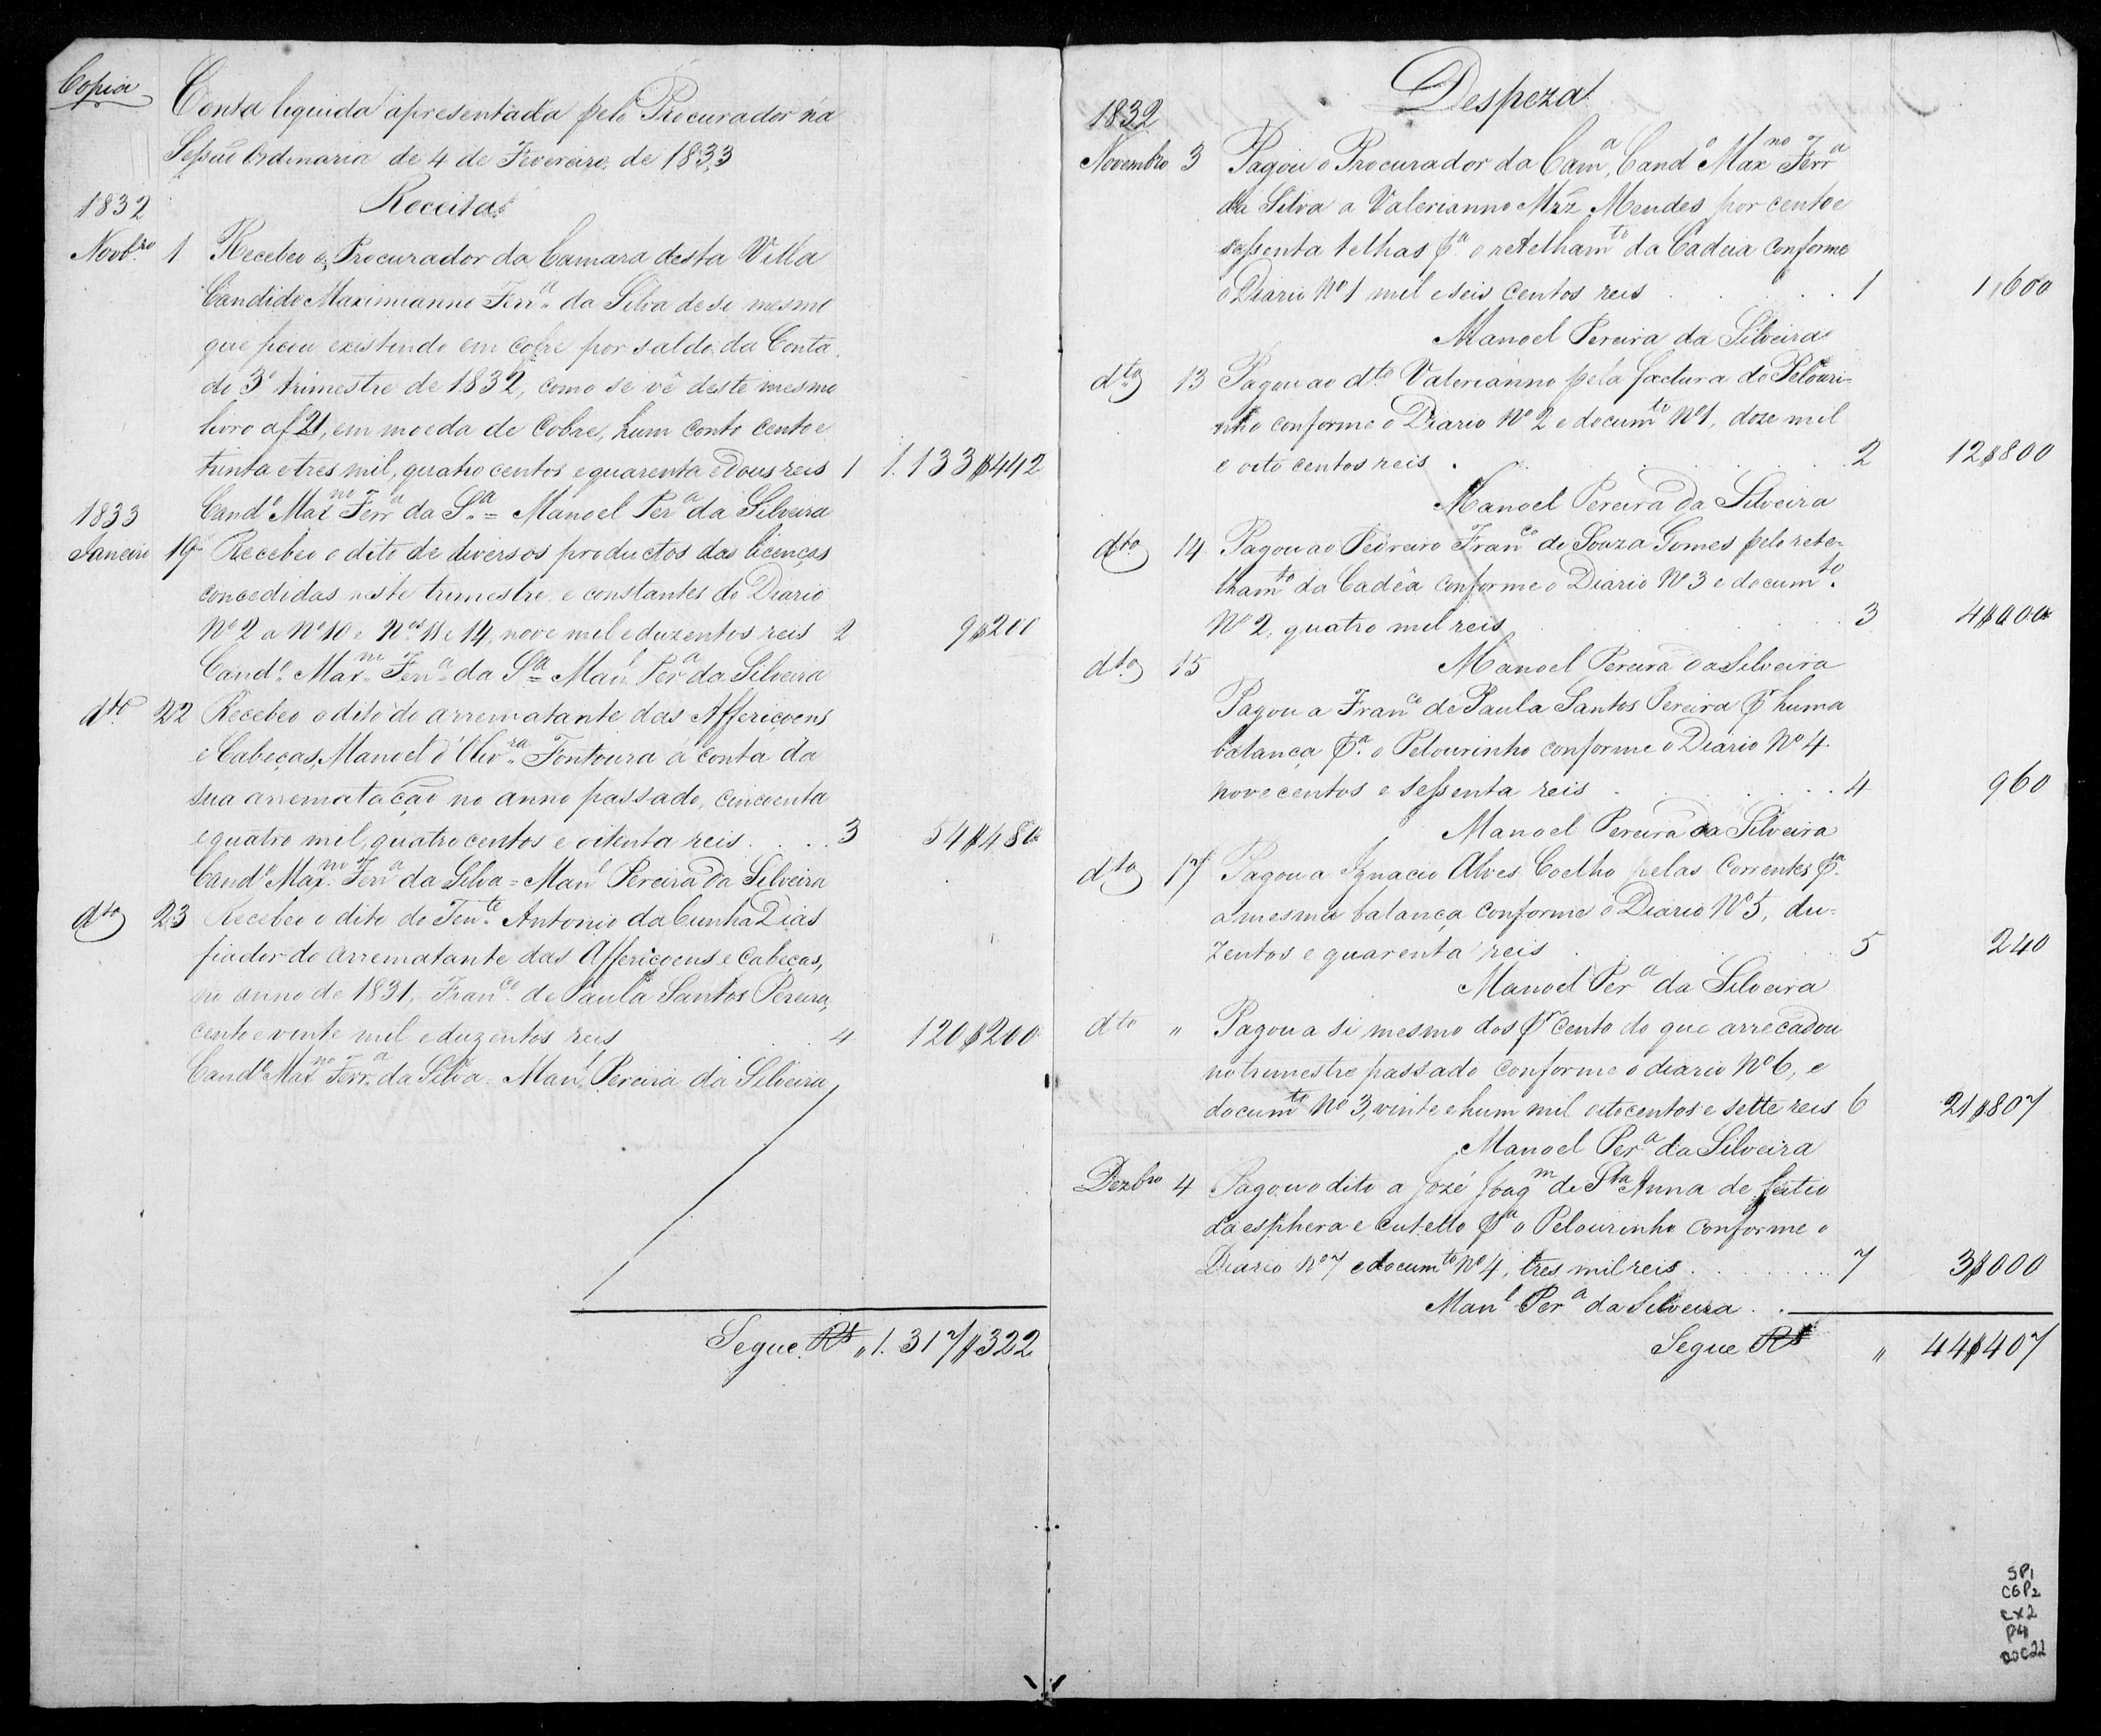 Copia
Conta liquida apresentada pelo Procurador na
Sessão Ordinaria de 4 de Fevereiro de 1833
1832 Receita
Novbro 1 Recebeo o Procurador da Camara desta Villa
Candido Maximianno Ferra da Silva de si mesmo
que ficou existindo em cofre por saldo da Conta
do 3º trimestre de 1832, como se vê deste mesmo
livro af 21, em moeda de Cobre, hum conto cento e
trinta e tres mil, quatro centos e quarenta e dous reis 1 1.133$442
1833 Cando Maxno Ferra da Sa = Manoel Pera da Silveira
Janeiro 19 Recebeo o dito de diversos productos das licenças
concedidas neste trimestre e constantes do Diario
Nº 2 a Nº 10 e Nos 11 e 14, nove mil e duzentos reis 2 9$200
Cando Maxno Ferra da Sa = Manl Pera da Silveira
dto 22 Recebeo o dito do arrematante das Affericoens
e Cabeças, Manoel d'Olivra Fontoura á conta da
sua arrematação no anno passado, cincoenta
e quatro mil, quatro centos e oitenta reis . . . . 3 54$480
Cando Maxno Ferra da Silva = Manl Pereira da Silveira
dto 23 Recebeo o dito do Tente Antonio da Cunha Dias
fiador do arrematante das Affericoens e Cabeças,
no anno de 1831, Franco de Paula Santos Pereira,
cento e vinte mil e duzentos reis . . 4 120$200
Cando Maxno Ferra da Silva = Manl Pereira da Silveira
Segue Rs " 1.317$322
Despeza
1832
Novembro 3 Pagou o Procurador da Cama, Cando Maxno Ferra
da Silva a Valerianno Mrz Mendes por cento e
sessenta telhas pa o retelhamto da Cadeia conforme
o Diario Nº 1 mil e seis centos reis . . . . 1 1$600
Manoel Pereira da Silveira
dto 13 Pagou ao dto Valerianno pela factura do Pelouri-
nho conforme o Diario Nº 2 e documto Nº 1, doze mil
e oito centos reis . . . . 2 12$800
Manoel Pereira da Silveira
dto 14 Pagou ao Pedreiro Franco de Souza Gomes pelo rete-
lhamto da Cadêa conforme o Diario Nº 3 e documto
Nº 2, quatro mil reis . . . . 3 4$000
dto 15 Manoel Pereira da Silveira
Pagou a Franco de Paula Santos Pereira pr huma
balança pa o Pelourinho conforme o Diario Nº 4.
nove centos e sessenta reis . . . . 4 960
Manoel Pereira da Silveira
dto 17 Pagou a Ignacio Alves Coelho pelas correntes pa
a mesma balança conforme o Diario Nº 5, du-
zentos e quarenta reis . . . . 5 240
Manoel Pera da Silveira
dto " Pagou a si mesmo dos pr cento do que arrecadou
no trimestre passado conforme o diario Nº 6, e
documto Nº 3, vinte e hum mil oitocentos e sette reis 6 21$807
Manoel Pera da Silveira
Dezbro 4 Pagou o dito a José Joaqm de Sta Anna de feitio
da esphera e cutello pa o Pelourinho conforme o
Diario Nº 7 e documto Nº 4, tres mil reis . . . . 7 3$000
Manl Pera da Silveira . .
Segue Rs " 44$407
SP1
CGP2
CX2
P4
DOC22